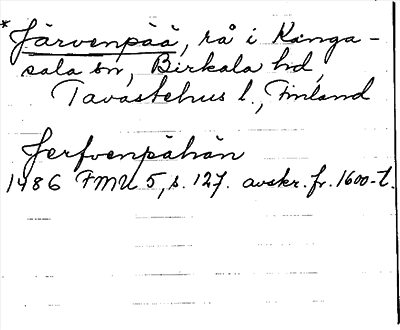 *Järvenpää, rå i Kanga-
sala sn, Birkala hd,
Tavastehus l., Finland
Jerfvenpähän
1486 FMU 5, s. 127. avskr. fr. 1600-t.